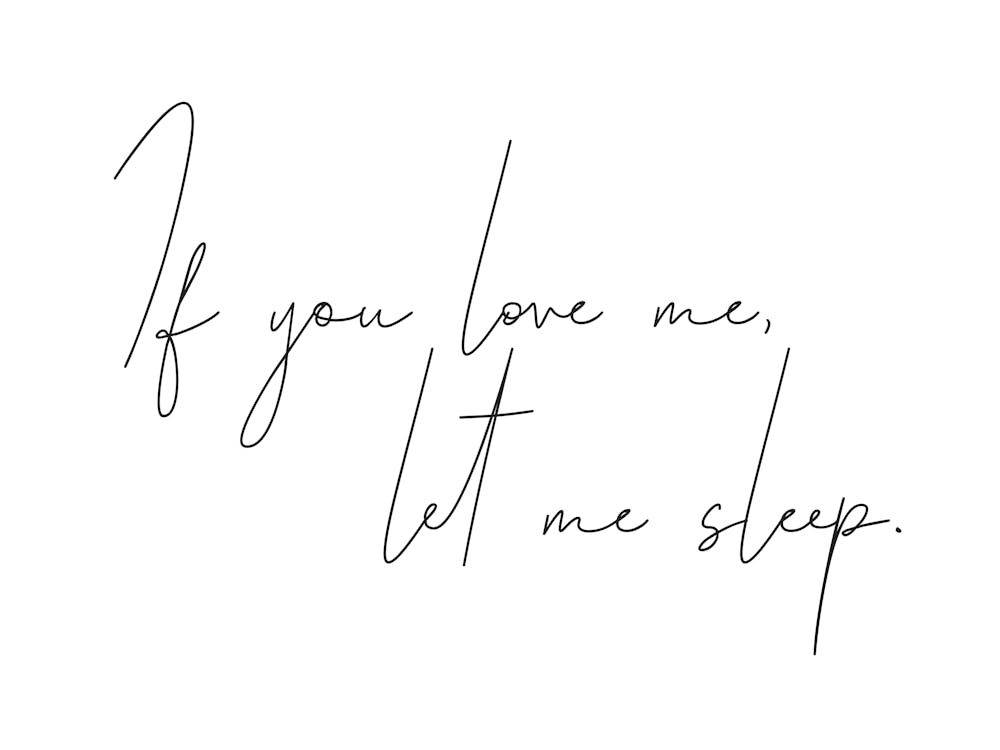 If you love me,
let me sleep.